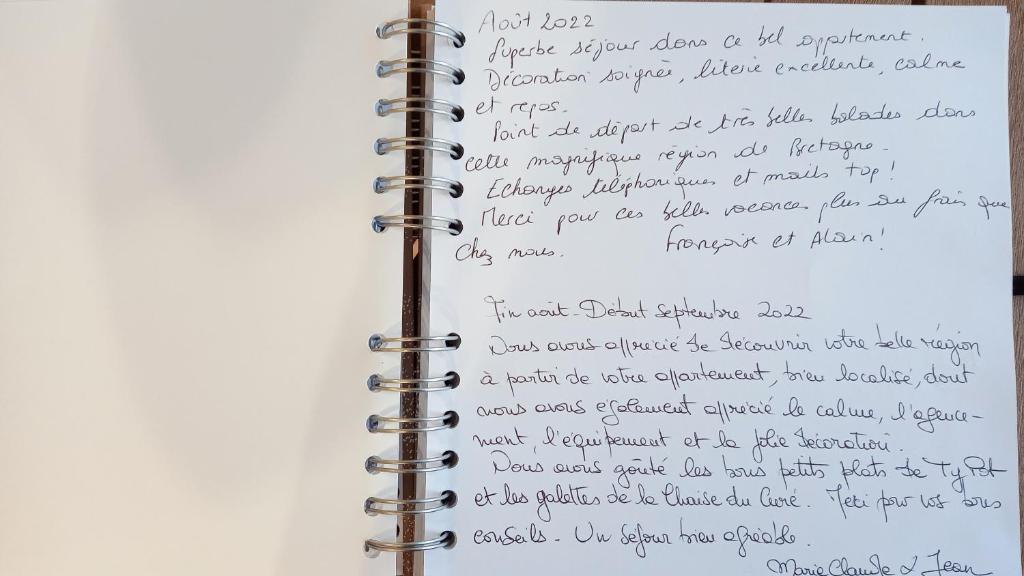 Août 2022
Superbe séjour dans ce bel appartement.
Décoration soignée, literie excellente, calme
et repos.
Point de départ de très belles balades dans
cette magnifique région de Bretagne.
Echanges téléphoniques et mails top!
Merci pour ces belles vacances plus au frais que
chez nous. Françoise et Alain!
Fin août - Début septembre 2022
Nous avons apprécié de découvrir votre belle région
à partir de votre appartement, bien localisé, dont
nous avons également apprécié le calme, l'agence-
ment, l'équipement et la jolie décoration.
Nous avons goûté les bons petits plats de Ty Pot
et les galettes de la Chaise du Curé. Merci pour vos bons
conseils - Un séjour bien agréable.
Marie Claude & Jean